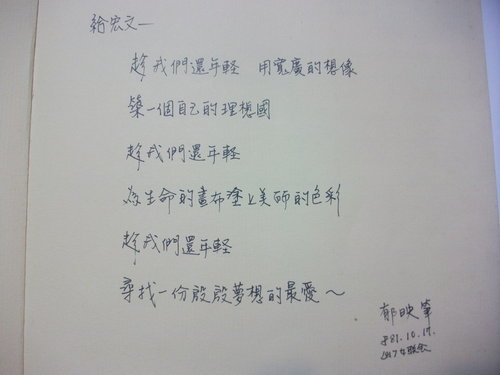 給宏文—
趁我們還年輕 用寬廣的想像
築一個自己的理想國
趁我們還年輕
為生命的畫布塗上美師的色彩
趁我們還年輕
尋找一份殷殷夢想的最愛～
鄭映筆
81.10.17.